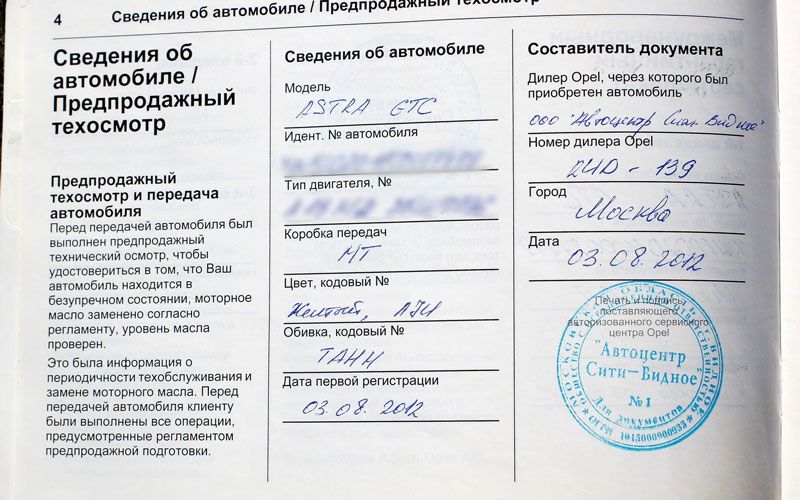 4 Сведения об автомобиле / Предпродажный техосмотр
Сведения об
автомобиле /
Предпродажный
техосмотр
Предпродажный
техосмотр и передача
автомобиля
Перед передачей автомобиля был
выполнен предпродажный
технический осмотр, чтобы
удостовериться в том, что Ваш
автомобиль находится в
безупречном состоянии, моторное
масло заменено согласно
регламенту, уровень масла
проверен.
Это была информация о
периодичности техобслуживания и
замене моторного масла. Перед
передачей автомобиля клиенту
были выполнены все операции,
предусмотренные регламентом
предпродажной подготовки.
Сведения об автомобиле
Модель
ASTRA GTC
Идент. № автомобиля
Тип двигателя, №
Коробка передач
МТ
Цвет, кодовый №
Желтый,
Обивка, кодовый №
ТАНН
Дата первой регистрации
03.08.2012
Составитель документа
Дилер Opel, через которого был
приобретен автомобиль
ООО "Автоцентр Сити-Видное"
Номер дилера Opel
- 139
Город
Москва
Дата
03.08.2012
Печать и подписи
поставляющего
авторизованного сервисного
центра Opel
МОСКОВСКАЯ ОБЛАСТЬ Г. ВИДНОЕ
ОБЩЕСТВО С ОГРАНИЧЕННОЙ ОТВЕТСТВЕННОСТЬЮ
"Автоцентр
Сити-Видное"
№1
Для документов